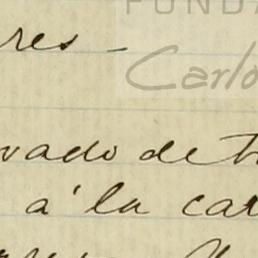 FUNDA
res -
Carlo
vado de t
á la car